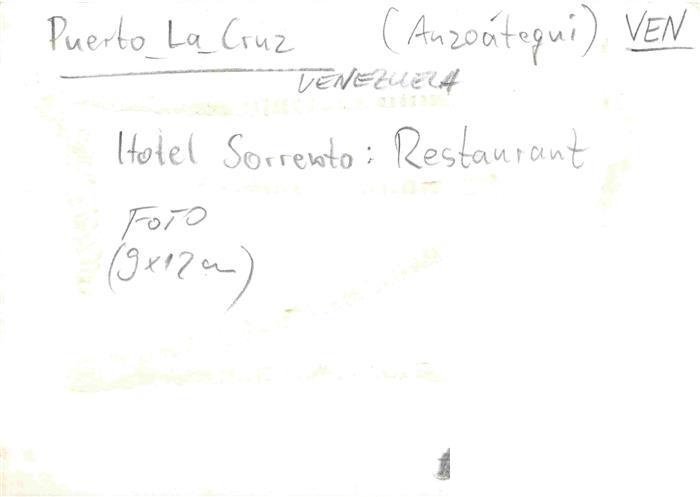 Puerto_La_Cruz (Anzoátegui) VEN
VENEZUELA
Hotel Sorrento: Restaurant
FOTO
(9x12 cm)